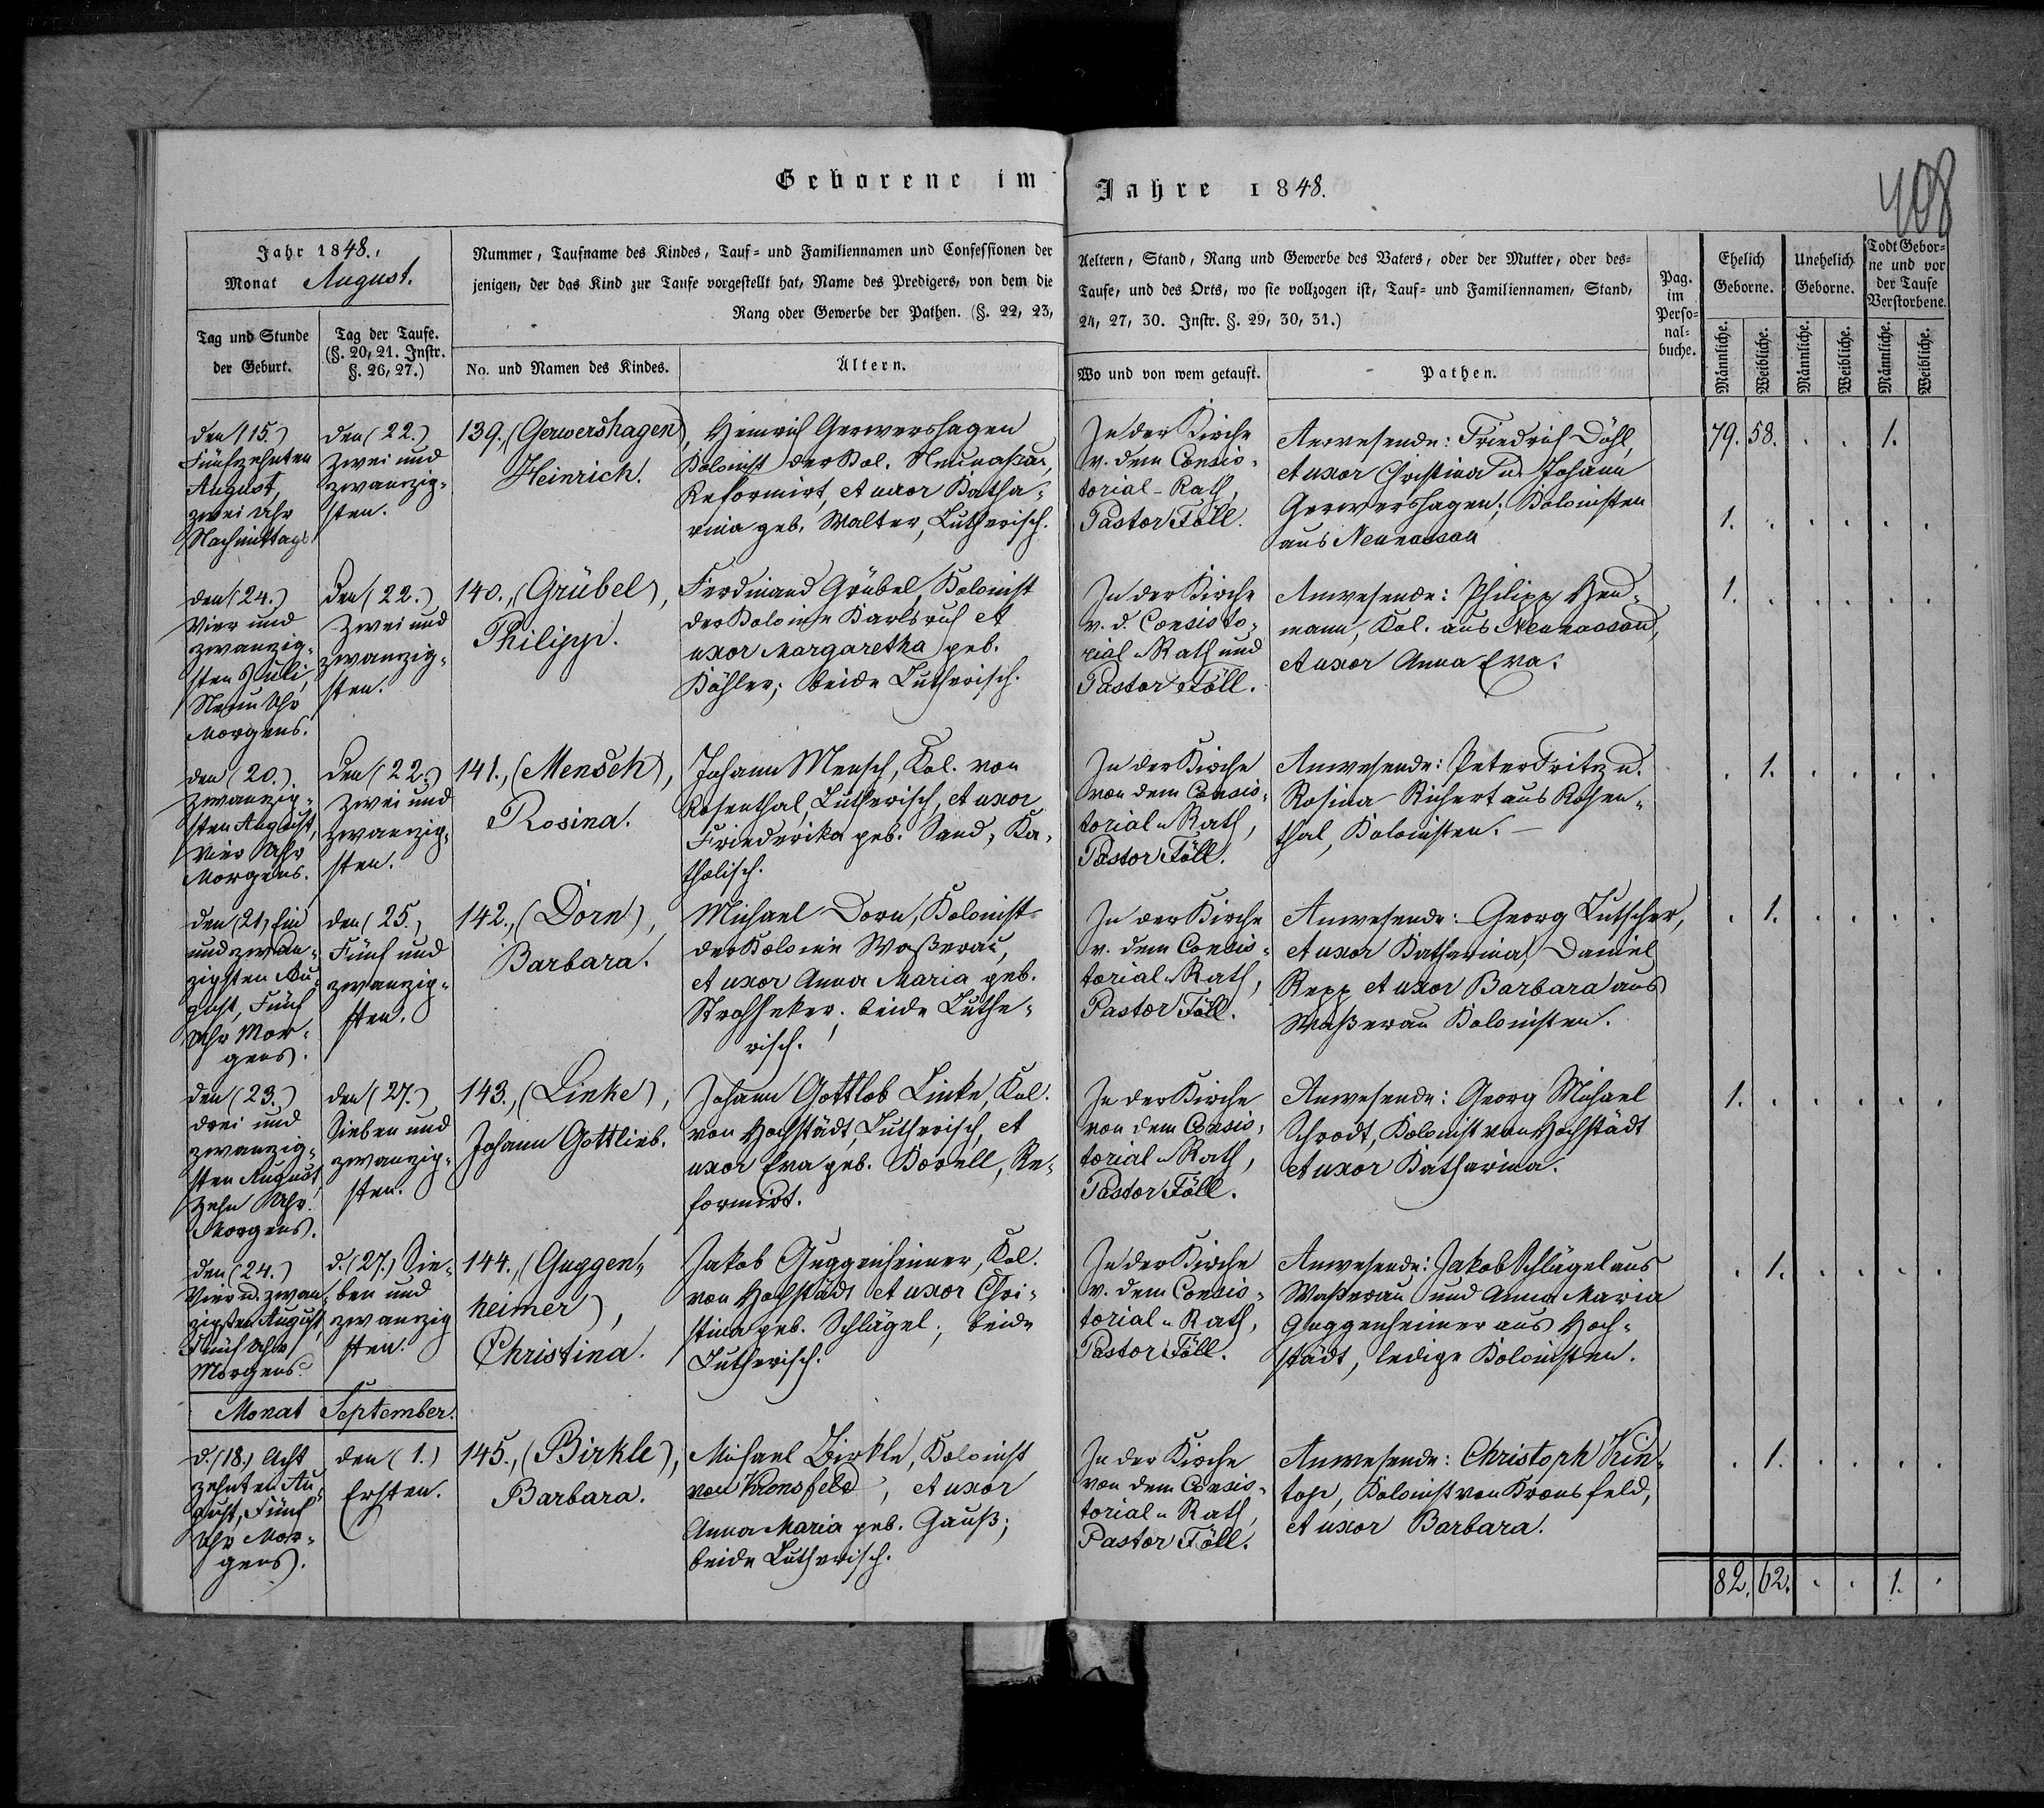 Geborene im Jahre 1848.
408
Jahr 1848.,
Monat August.
Nummer, Taufname des Kindes, Tauf= und Familiennamen und Confessionen der
jenigen, der das Kind zur Taufe vorgestellt hat, Name des Predigers, von dem die
Rang oder Gewerbe der Pathen. (§. 22, 23,
Tag und Stunde
der Geburt.
Tag der Taufe.
(§. 20, 21. Instr.
§. 26, 27.)
No. und Namen des Kindes.
Ältern.
Aeltern, Stand, Rang und Gewerbe des Vaters, oder der Mutter, oder des=
Taufe, und des Orts, wo sie vollzogen ist, Tauf= und Familiennamen, Stand,
24, 27, 30. Instr. §. 29, 30, 31.)
Wo und von wem getauft.
Pathen.
Pag.
im
Perso=
nal=
buche.
Ehelich
Geborne.
Unehelich
Geborne.
Todt Gebor=
ne und vor
der Taufe
Verstorbene.
Männliche.
Weibliche.
Männliche.
Weibliche.
Männliche.
Weibliche.
den (15.)
Fünfzehnten
August,
zwei Uhr
Nachmittags
den (22.)
zwei und
zwanzig=
sten.
139., (Gerwershagen),
Heinrich.
Heinrich Gerwershagen
Kolonist der Kol. Neunassau,
Reformirt, et uxor Katha=
rina geb. Walter, Lutherisch.
In der Kirche
v. dem Consis=
torial-Rath,
Pastor Föll.
Anwesende: Friedrich Döhl,
et uxor Christina u. Johann
Gerwershagen; Kolonisten
aus Neunassau
79. 58. . . 1.
1. . . . . .
den (24.)
Vier und
zwanzig=
sten Juli,
Neun Uhr
Morgens.
den (22.)
Zwei und
zwanzig=
sten.
140., (Grübel),
Philipp.
Ferdinand Grübel, Kolonist
der Kolonie Karlsruh et
uxor Margaretha geb.
Köhler; beide Lutherisch.
In der Kirche
v. d. Consisto=
rial=Rath und
Pastor Föll.
Anwesende: Philipp Heu=
mann, Kol. aus Neunassau,
et uxor Anna Eva.
1. . . . . .
den (20.)
zwanzig=
sten August,
Vier Uhr
Morgens.
den (22.)
Zwei und
zwanzig=
sten.
141., (Mensch),
Rosina.
Johann Mensch, Kol. von
Rosenthal, Lutherisch, et uxor
Friederika geb. Sand, Ka=
tholisch.
In der Kirche
von dem Consis=
torial=Rath,
Pastor Föll.
Anwesende: Peter Fritz u.
Rosina Richert aus Rosen=
thal, Kolonisten. —
. 1. . . . .
den (21.) Ein
und zwan=
zigsten Au=
gust, Fünf
Uhr Mor=
gens.
den (25.)
Fünf und
zwanzig=
sten.
142., (Dorn),
Barbara.
Michael Dorn, Kolonist
der Kolonie Waßerau,
et uxor Anna Maria geb.
Strohheker; beide Luthe=
risch.
In der Kirche
v. dem Consis=
torial=Rath,
Pastor Föll.
Anwesende: Georg Lutscher,
et uxor Katharina, Daniel
Repp et uxor Barbara aus
Waßerau Kolonisten.
. 1. . . . .
den (23.)
drei und
zwanzig=
sten August,
Zehn Uhr
Morgens.
den (27.)
Sieben und
zwanzig=
sten.
143., (Linke),
Johann Gottlieb.
Johann Gottlob Linke, Kol.
von Hochstädt, Lutherisch, et
uxor Eva geb. Korell, Re=
formirt.
In der Kirche
von dem Consis=
torial=Rath,
Pastor Föll.
Anwesende: Georg Michael
Schrodt, Kolonist von Hochstädt
et uxor Katharina.
1. . . . . .
den (24.)
Vier u. zwan=
zigsten August,
Fünf Uhr
Morgens.
d. (27.) Sie=
ben und
zwanzig
sten.
144., (Guggen=
heimer),
Christina.
Jakob Guggenheimer, Kol.
von Hochstädt et uxor Chri=
stina geb. Schlägel; beide
Lutherisch.
In der Kirche
v. dem Consis=
torial=Rath,
Pastor Föll.
Anwesende: Jakob Schlägel aus
Waßerau und Anna Maria
Guggenheimer aus Hoch=
städt, ledige Kolonisten.
. 1. . . . .
Monat September.
d. (18.) Acht
zehnten Au=
gust, Fünf
Uhr Mor=
gens.
den (1.)
Ersten.
145., (Birkle),
Barbara.
Michael Birkle, Kolonist
von Kronsfeld, et uxor
Anna Maria geb. Gauß;
beide Lutherisch.
In der Kirche
von dem Consis=
torial=Rath,
Pastor Föll.
Anwesende: Christoph Kin=
top, Kolonist von Kronsfeld,
et uxor Barbara.
. 1. . . . .
82. 62. . . 1. .